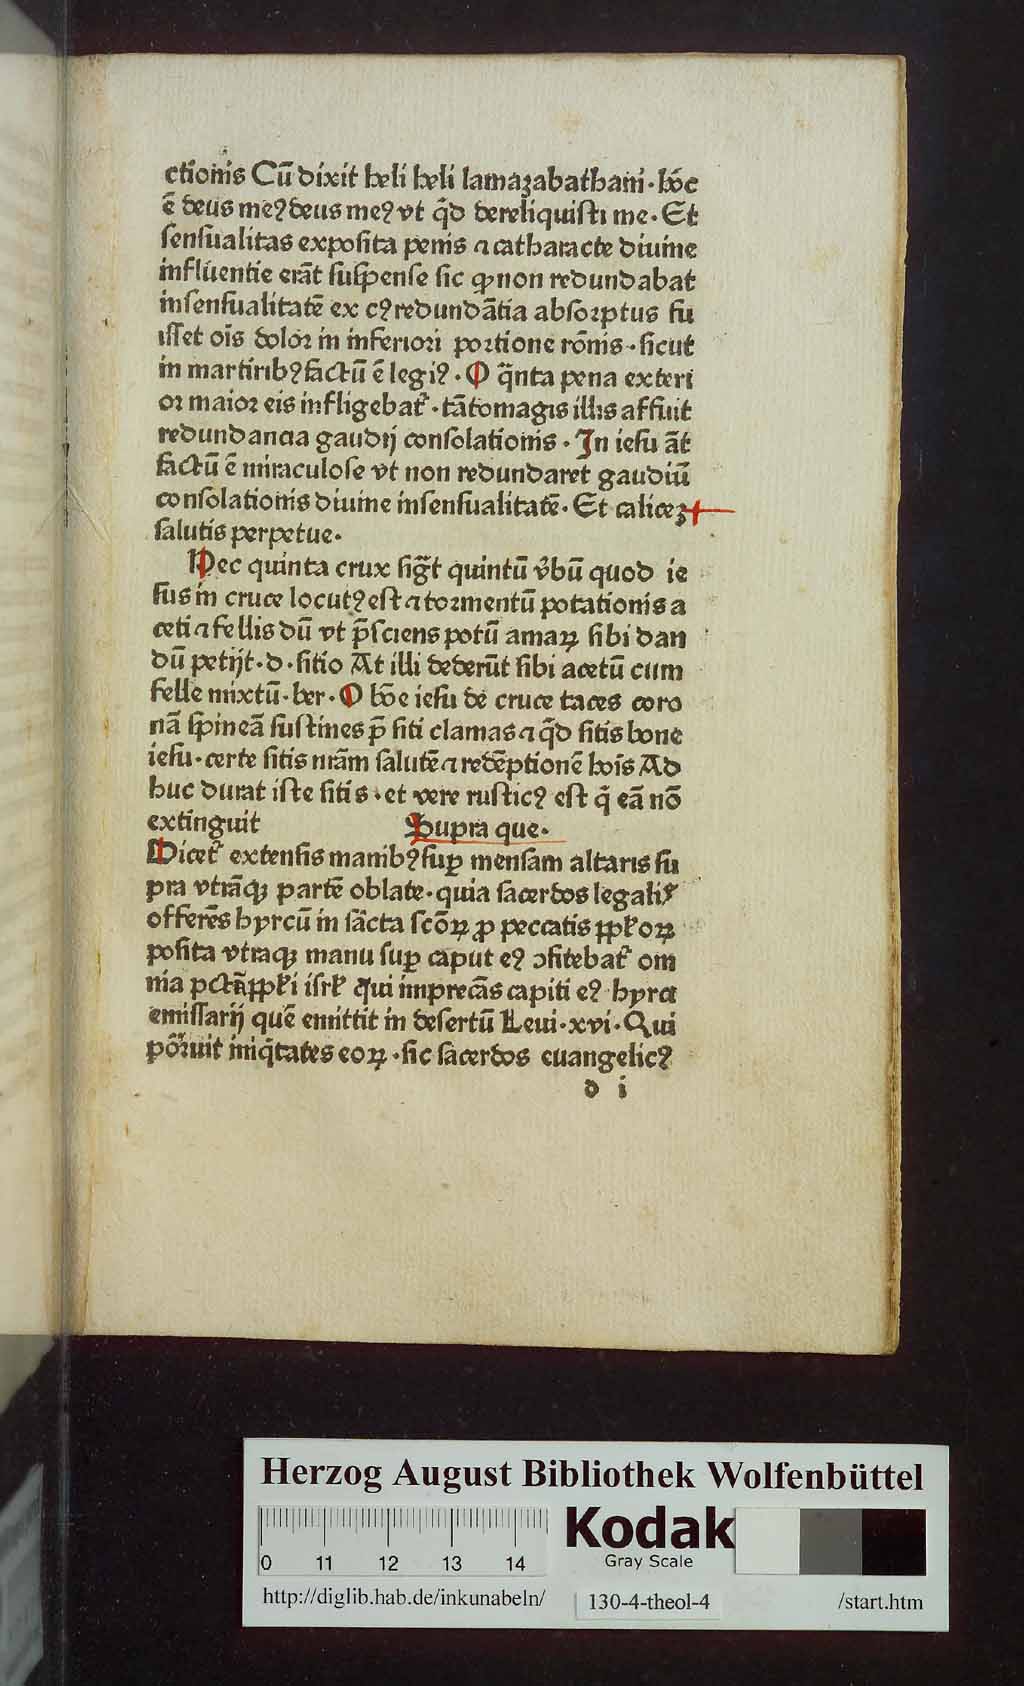 ctionis Cū dixit heli heli lamazabathani· hoc̄
ē deus meꝰ deus meꝰ vt qd̄ dereliquisti me· Et
sensualitas exposita penis ⁊ catharacte diuine
influentie erāt suspense sic ꝙ non redundabat
insensualitatē ex cꝰ redundātia absorptus fu
isset ois̄ dolor in inferiori portione rōnis· sicut
in martiribꝰ factū ē legiꝰ· Q qn̄ta pena exteri
or maior eis infligebat᷑· tātomagis illis affuit
redundancia gaudij consolationis· In iesu āt
factū ē miraculose vt non redundaret gaudiū
consolationis diuine insensualitatē· Et calicez +
salutis perpetue·
Hec quinta crux sigt̄ quintū v̄bū quod ie
sus in cruce locutꝰ est ⁊ tormentū potationis a
ceti ⁊ fellis dū vt p̄sciens potū amaꝝ sibi dan
dū petijt· d· sitio At illi dederūt sibi acetū cum
felle mixtū· ber· O bōe iesu de cruce taces coro
nā spineā sustines p̄ siti clamas ⁊ qd̄ sitis bone
iesu· certe sitis nrām salutē ⁊ redēptionē hoīs Ad
huc durat iste sitis· et vere rusticꝰ est q̄ eā nō
extinguit Supra que·
Dicet᷑ extensis manibꝰ suꝑ mensam altaris su
pra vtrāqꝫ partē oblate· quia sacerdos legalit᷑
offerēs hyrcū in sācta scōꝝ ꝓ peccatis ppłoꝝ
posita vtraqꝫ manu suꝑ caput eꝰ ↄfitebat᷑ om
nia pctā ppłi isrł qui imprecās capiti eꝰ hyrci
emissarij quē emittit in desertū Leui· xvi· Qui
portāuit iniq̄tates eoꝝ· sic sacerdos euangelicꝰ
d i
Herzog August Bibliothek Wolfenbüttel
0 11 12 13 14
Kodak
Gray Scale
http://diglib.hab.de/inkunabeln/ 130-4-theol-4 /start.htm